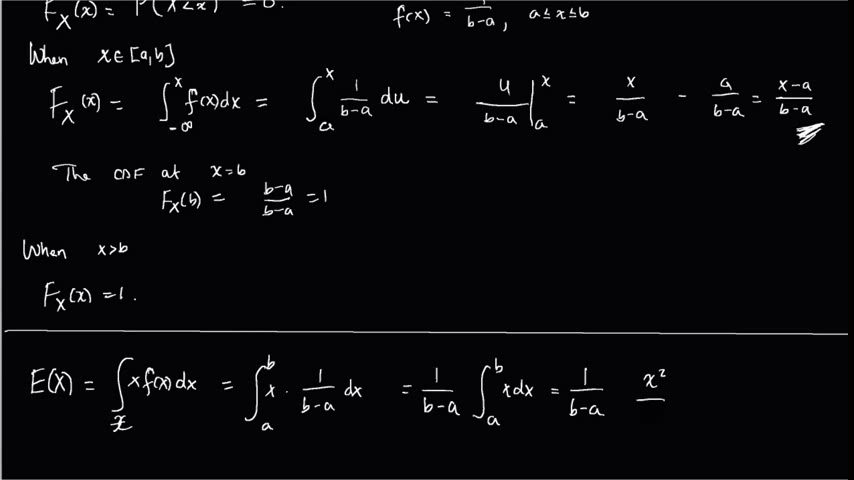 F_X(x) = P(X<x) = 0.
f(x) = 1/(b-a), a ≤ x ≤ b
When x ∈ [a,b]
F_X(x) = ∫_{-∞}^{x} f(x)dx = ∫_a^x 1/(b-a) du = u/(b-a) |_a^x = x/(b-a) - a/(b-a) = (x-a)/(b-a)
The CDF at x=b
F_X(b) = (b-a)/(b-a) = 1
When x>b
F_X(x) = 1.
E(X) = ∫_x x f(x) dx = ∫_a^b x · 1/(b-a) dx = 1/(b-a) ∫_a^b x dx = 1/(b-a) x²